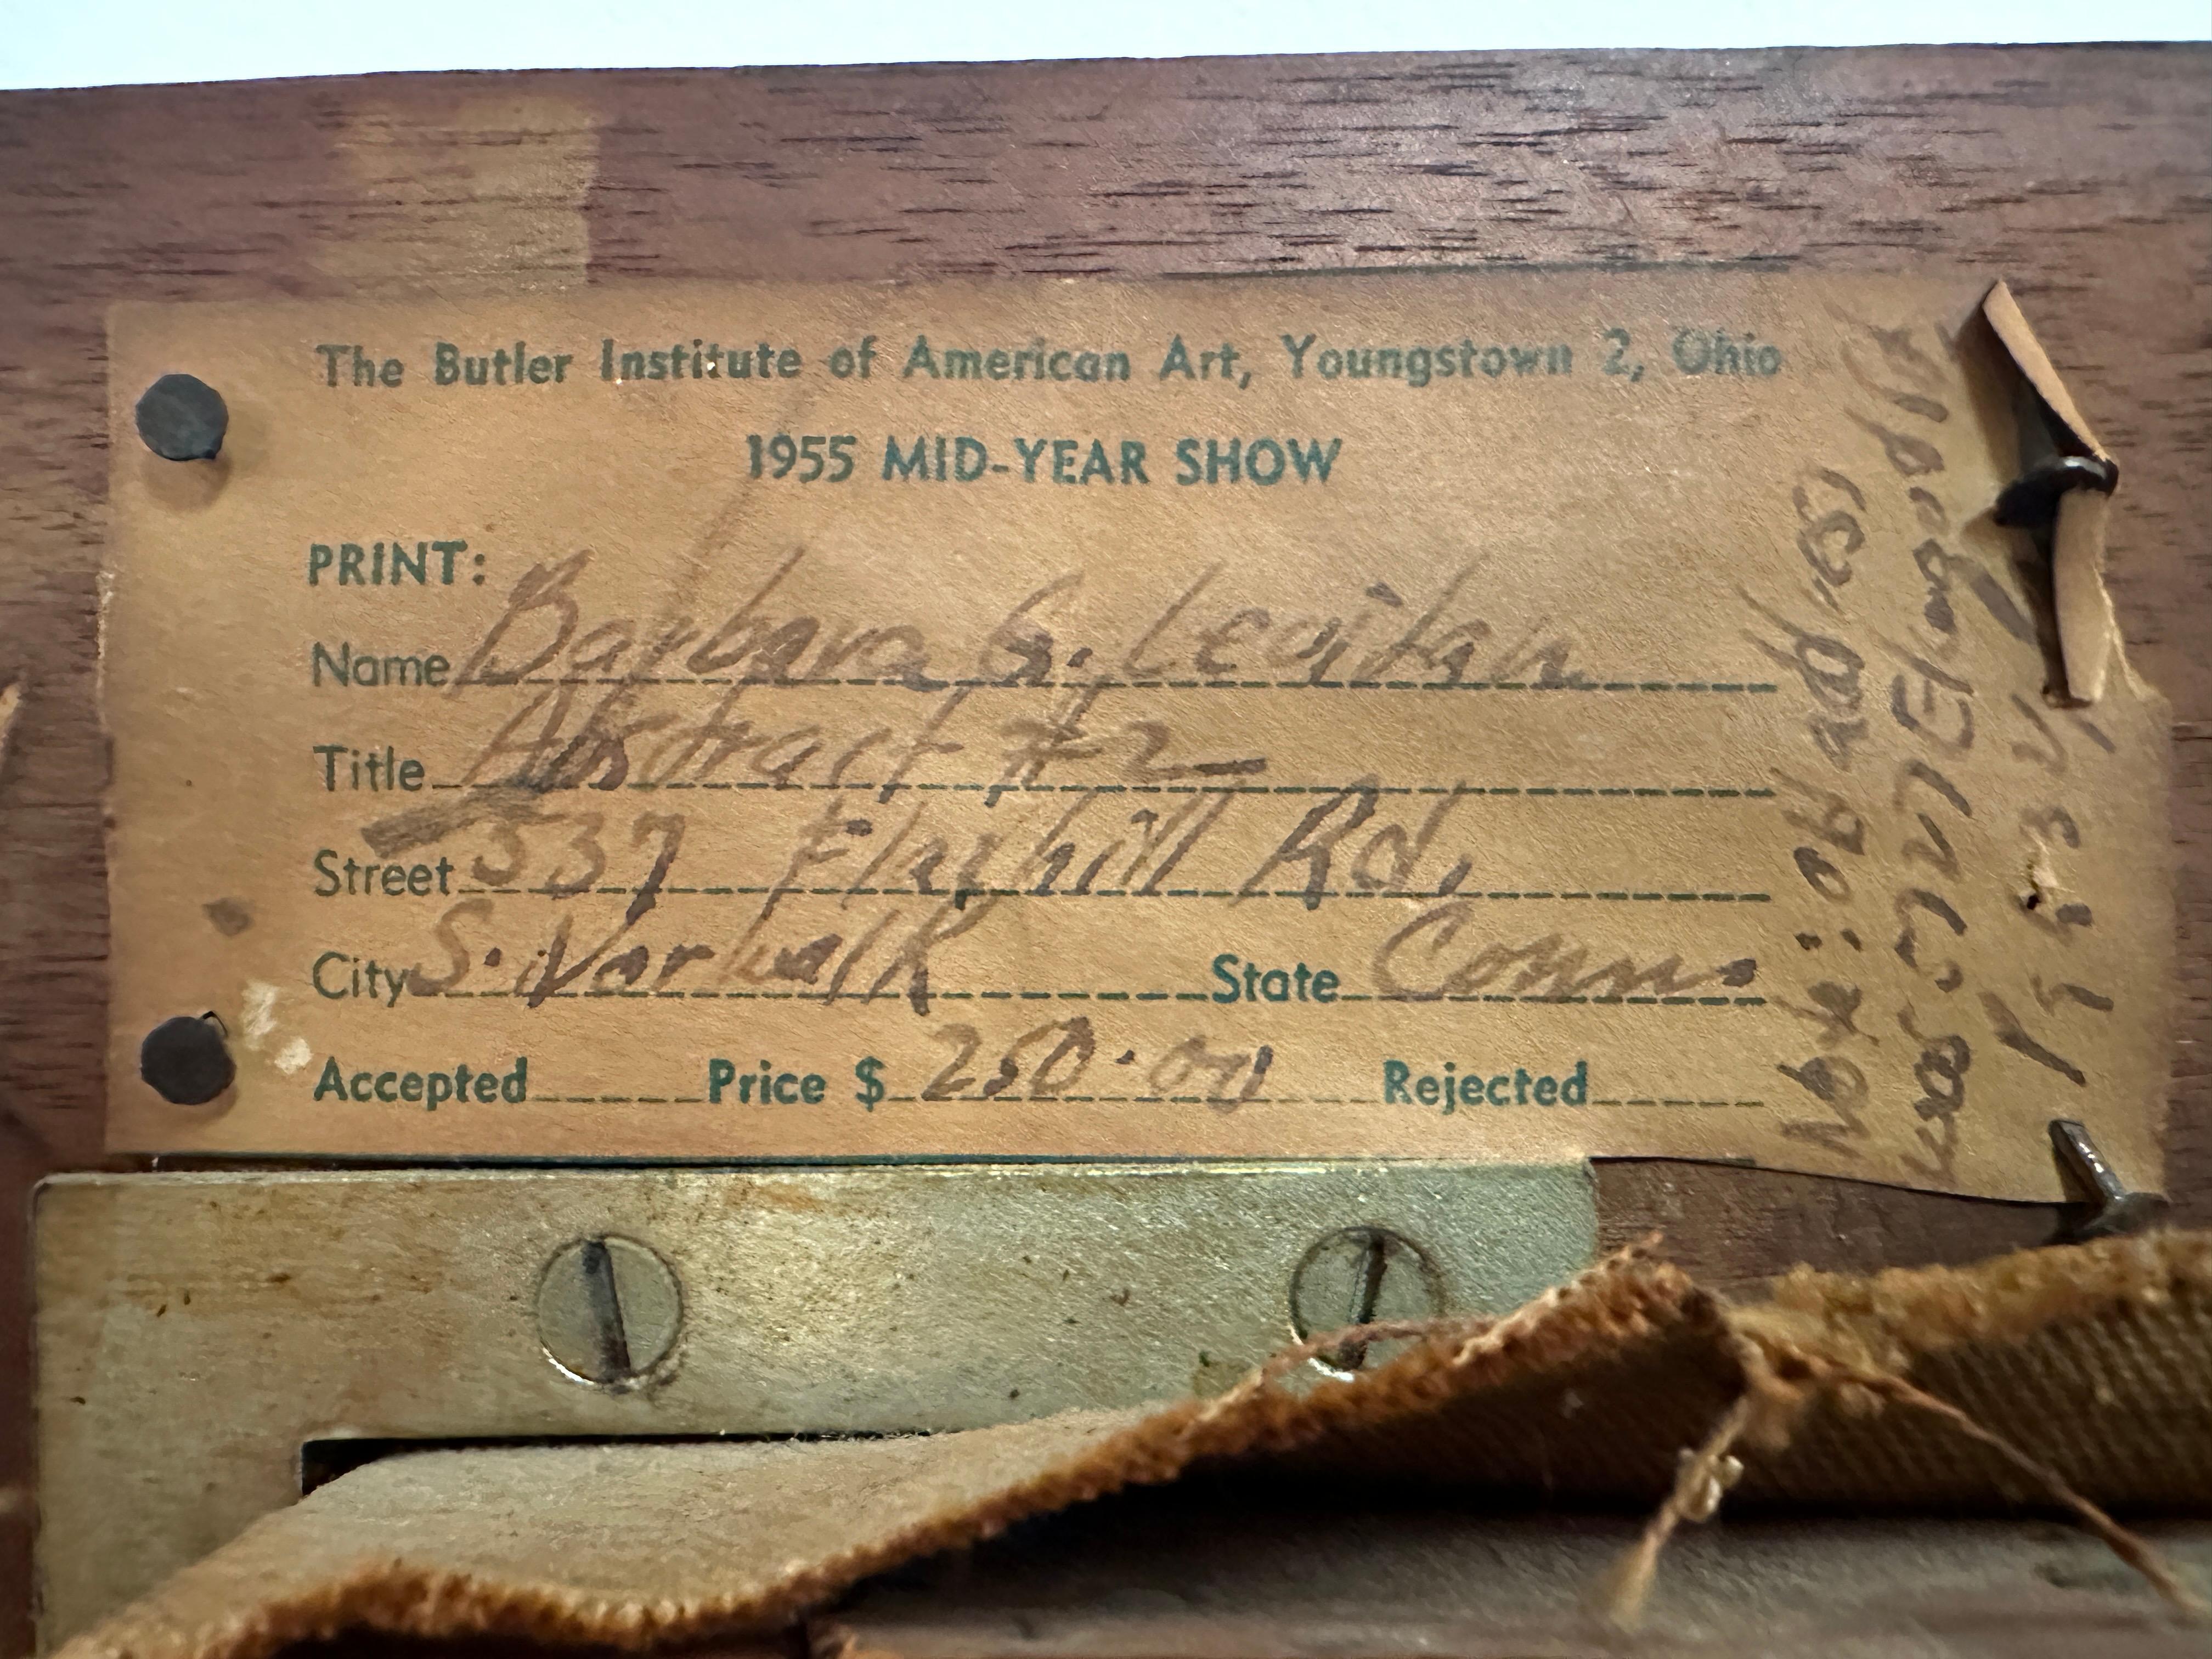 The Butler Institute of American Art, Youngstown 2, Ohio
1955 MID-YEAR SHOW
PRINT:
Name Barbara G. Levitan
Title Abstract #2
Street 537 Flaxhill Rd.
City S. Norwalk State Conn.
Accepted Price $ 250.00 Rejected
Note: old add. is